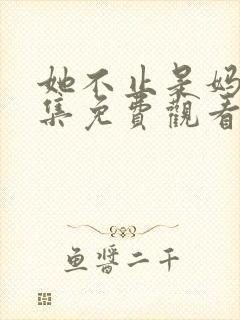 她不止是妈
集免費觀看
鱼醬二千